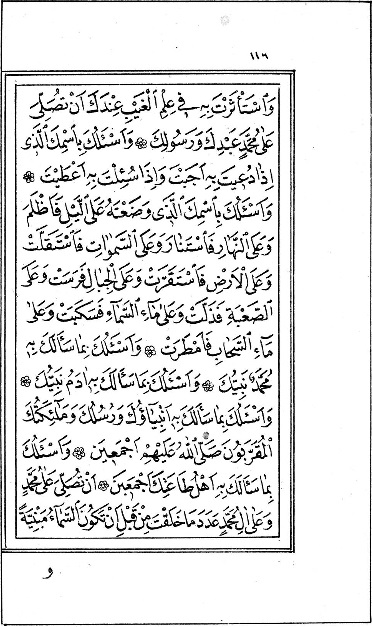 ١١٦
وَاسْتَأْثَرْتَ بِهٖ فِي عِلْمِ الْغَيْبِ عِنْدَكَ اَنْ تُصَلِّيَ
عَلٰى مُحَمَّدٍ عَبْدِكَ وَرَسُوْلِكَ ۞ وَاَسْئَلُكَ بِاسْمِكَ الَّذِي
اِذَا دُعِيْتَ بِهٖ اَجَبْتَ وَاِذَا سُئِلْتَ بِهٖ اَعْطَيْتَ ۞
وَاَسْئَلُكَ بِاسْمِكَ الَّذِي وَضَعْتَهُ عَلَى اللَّيْلِ فَاَظْلَمَ
وَعَلَى النَّهَارِ فَاسْتَنَارَ وَعَلَى السَّمٰوَاتِ فَاسْتَقَلَّتْ
وَعَلَى الْاَرْضِ فَاسْتَقَرَّتْ وَعَلَى الْجِبَالِ فَرَسَتْ وَعَلَى
الصَّعْبَةِ فَذَلَّتْ وَعَلٰى مَاءِ السَّمَاءِ فَسَكَبَتْ وَعَلٰى
مَاءِ السَّحَابِ فَاَمْطَرَتْ ۞ وَاَسْئَلُكَ بِمَا سَاَلَكَ بِهٖ
مُحَمَّدٌ نَبِيُّكَ ۞ وَاَسْئَلُكَ بِمَا سَاَلَكَ بِهٖ اٰدَمُ نَبِيُّكَ ۞
وَاَسْئَلُكَ بِمَا سَاَلَكَ بِهٖ اَنْبِيَاؤُكَ وَرُسُلُكَ وَمَلٰئِكَتُكَ
الْمُقَرَّبُوْنَ صَلَّى اللهُ عَلَيْهِمْ اَجْمَعِيْنَ ۞ وَاَسْئَلُكَ
بِمَا سَاَلَكَ بِهٖ اَهْلُ طَاعَتِكَ اَجْمَعِيْنَ ۞ اَنْ تُصَلِّيَ عَلٰى مُحَمَّدٍ
وَعَلٰى اٰلِ مُحَمَّدٍ عَدَدَ مَا خَلَقْتَ مِنْ قَبْلِ اَنْ تَكُوْنَ السَّمَاءُ مَبْنِيَّةً
و